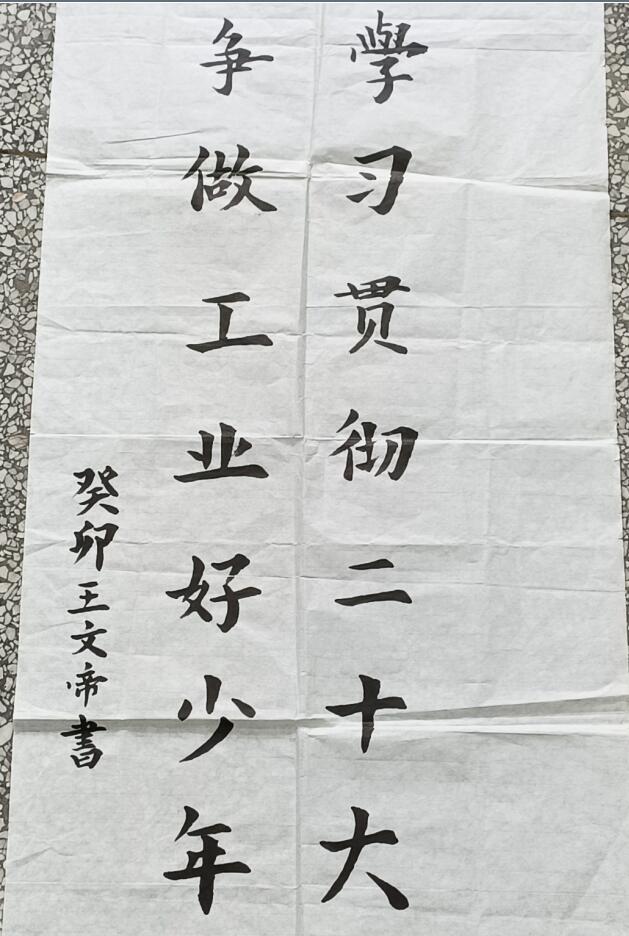 學习贯彻二十大
争做工业好少年
癸卯王文帝書